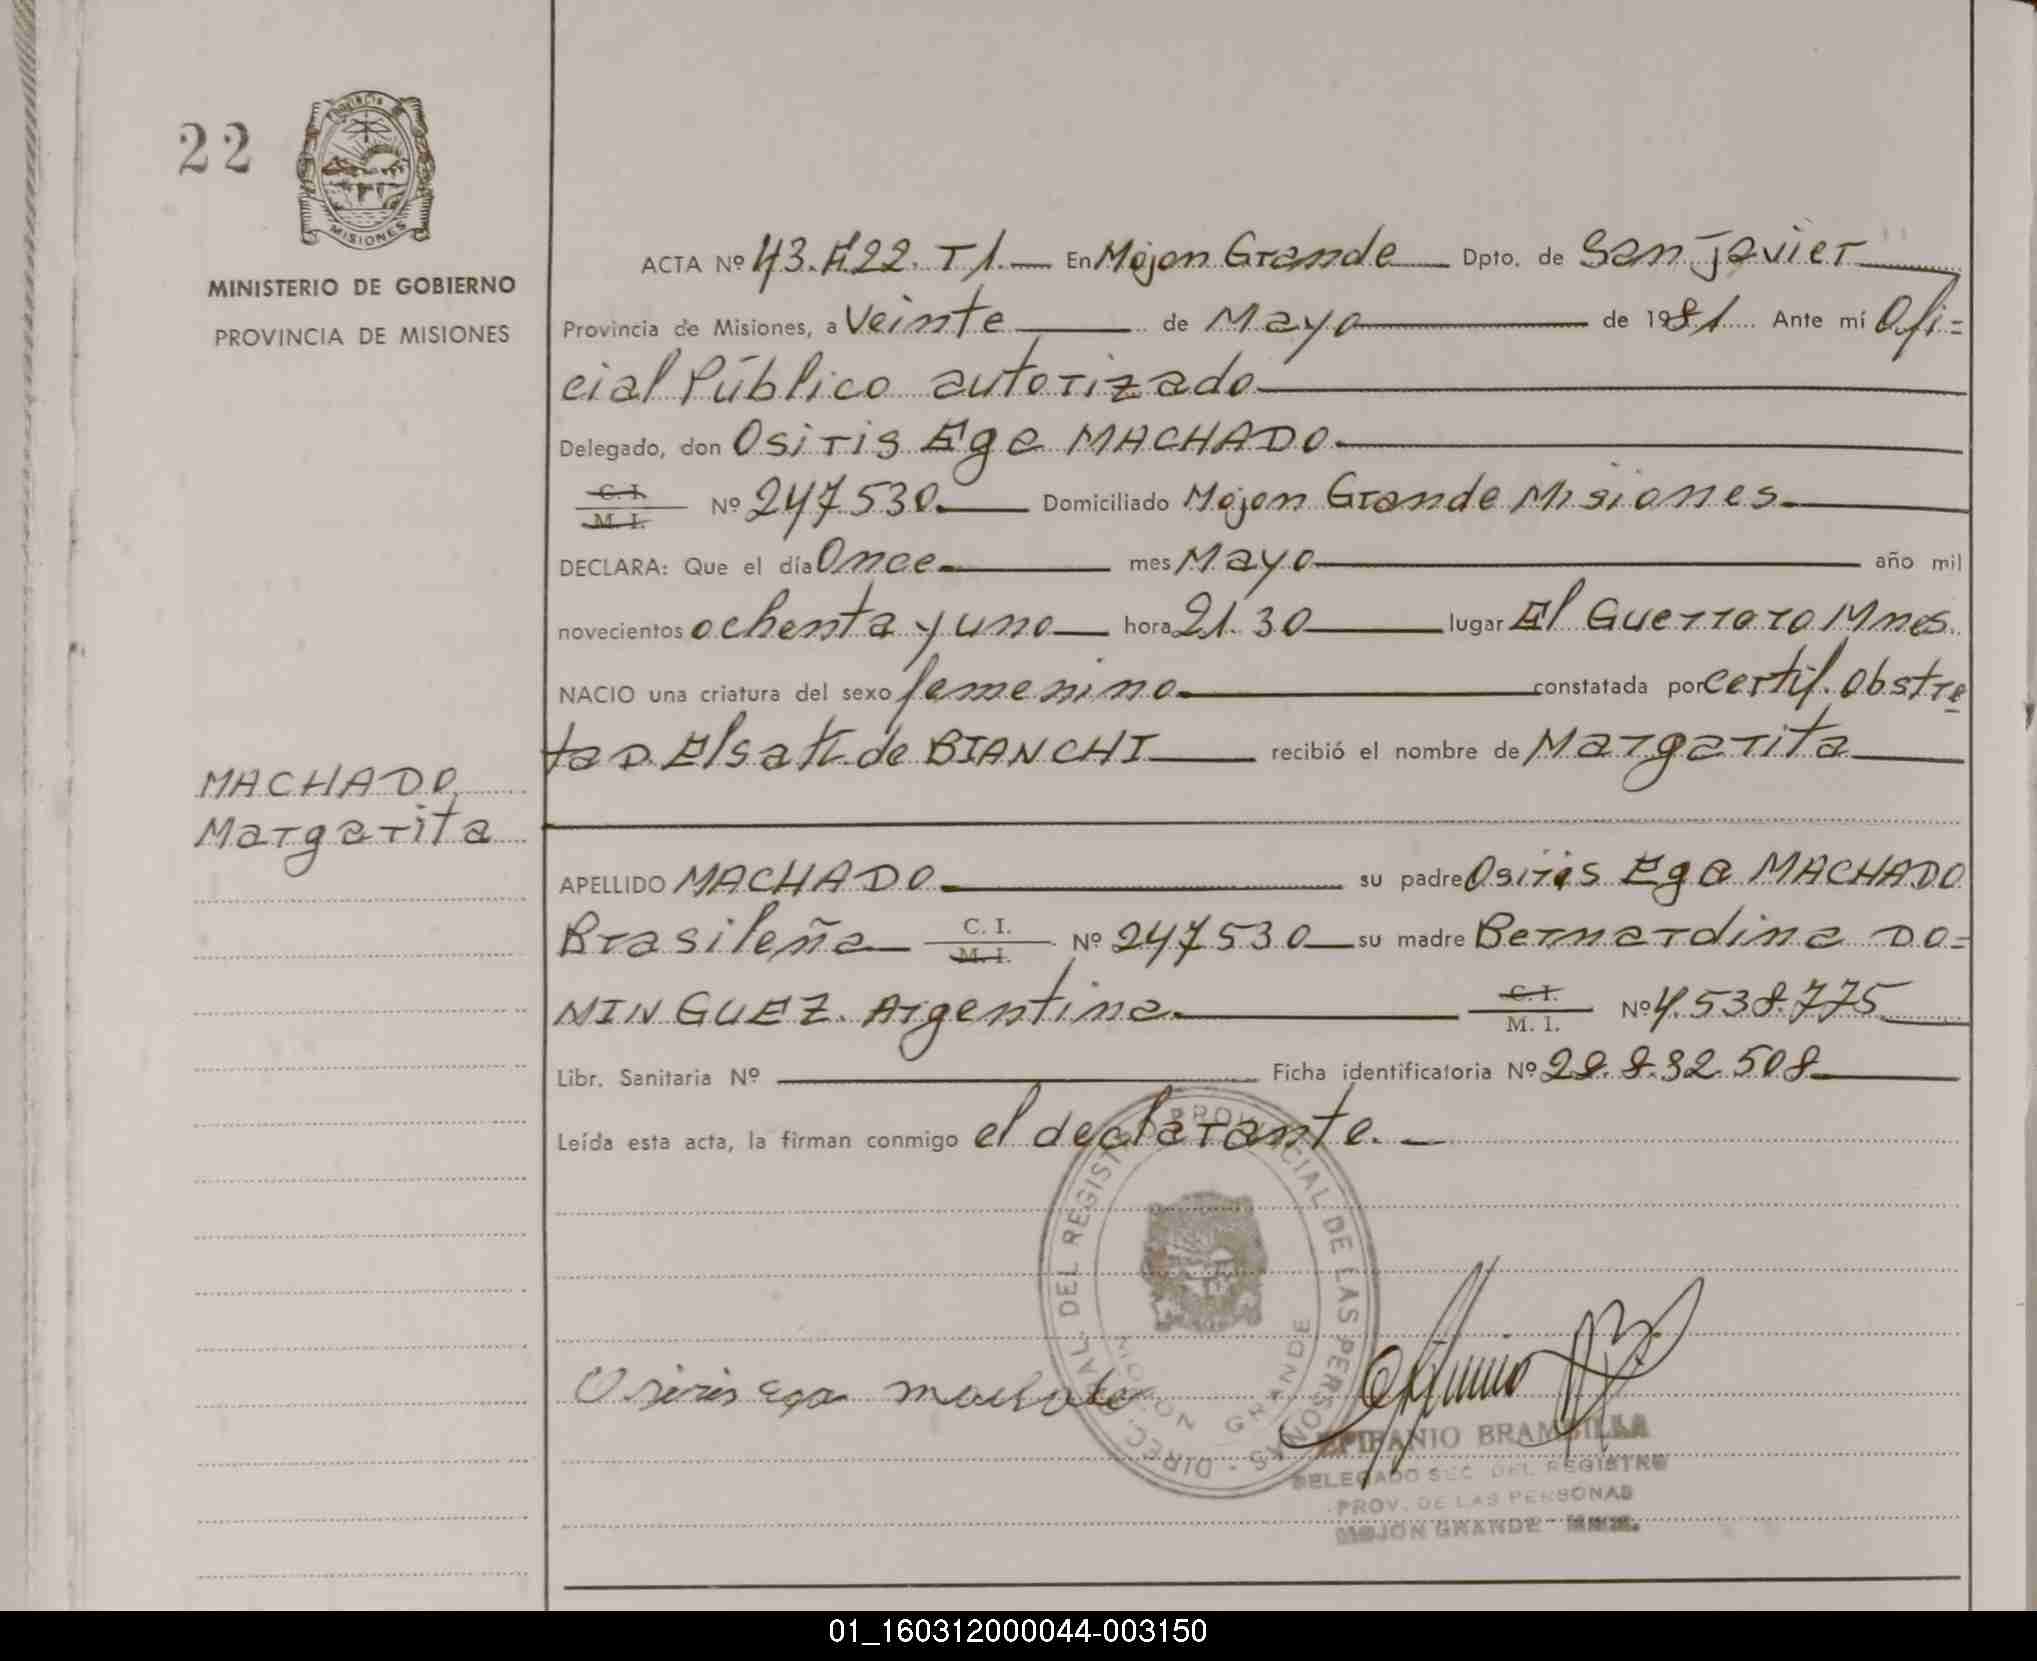 22
PROVINCIA
MISIONES
MINISTERIO DE GOBIERNO
PROVINCIA DE MISIONES
ACTA Nº 43. F.22. T1. En Mojon Grande Dpto. de San Javier
Provincia de Misiones, a Veinte de Mayo de 1981. Ante mí Ofi=
cial Público autorizado
Delegado, don Osiris Ega MACHADO.
C. I.
M. I. Nº 247.530. Domiciliado Mojon Grande Misiones.
DECLARA: Que el día Once mes Mayo año mil
novecientos ochenta y uno hora 21.30 lugar El Guerrero Mnes.
NACIO una criatura del sexo femenino. constatada por certif. Obstre
ta D. Elsa de BIANCHI recibió el nombre de Margarita
MACHADO
Margarita
APELLIDO MACHADO su padre Osiris Ega MACHADO
Brasileña C. I.
M. I. Nº 247.530 su madre Bernardina DO=
MINGUEZ. Argentina. C. I.
M. I. Nº 4.538.775
Libr. Sanitaria Nº Ficha identificatoria Nº 28.832.508
Leída esta acta, la firman conmigo el declarante.
DIREC. PROVINCIAL DE LAS PERSONAS
MOJON GRANDE
Osiris Ega Machado
EPIFANIO BRAMBILLA
DELEGADO SEC. DEL REGISTRO
PROV. DE LAS PERSONAS
MOJON GRANDE - Mnes.
01_160312000044-003150